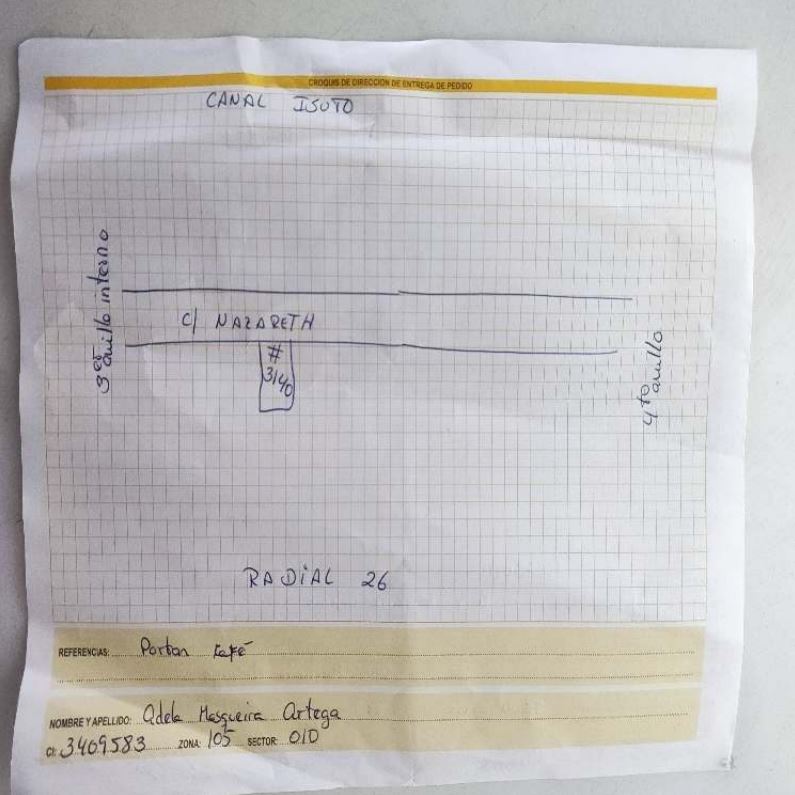 CROQUIS DE DIRECCION DE ENTREGA DE PEDIDO
CANAL ISUTO
3er anillo interno
C/ NAZARETH
#
3140
4to anillo
RADIAL 26
REFERENCIAS: Porton Café
NOMBRE Y APELLIDO: Adela Mosqueira Artega
CI: 3409583 ZONA: 105 SECTOR: 01D